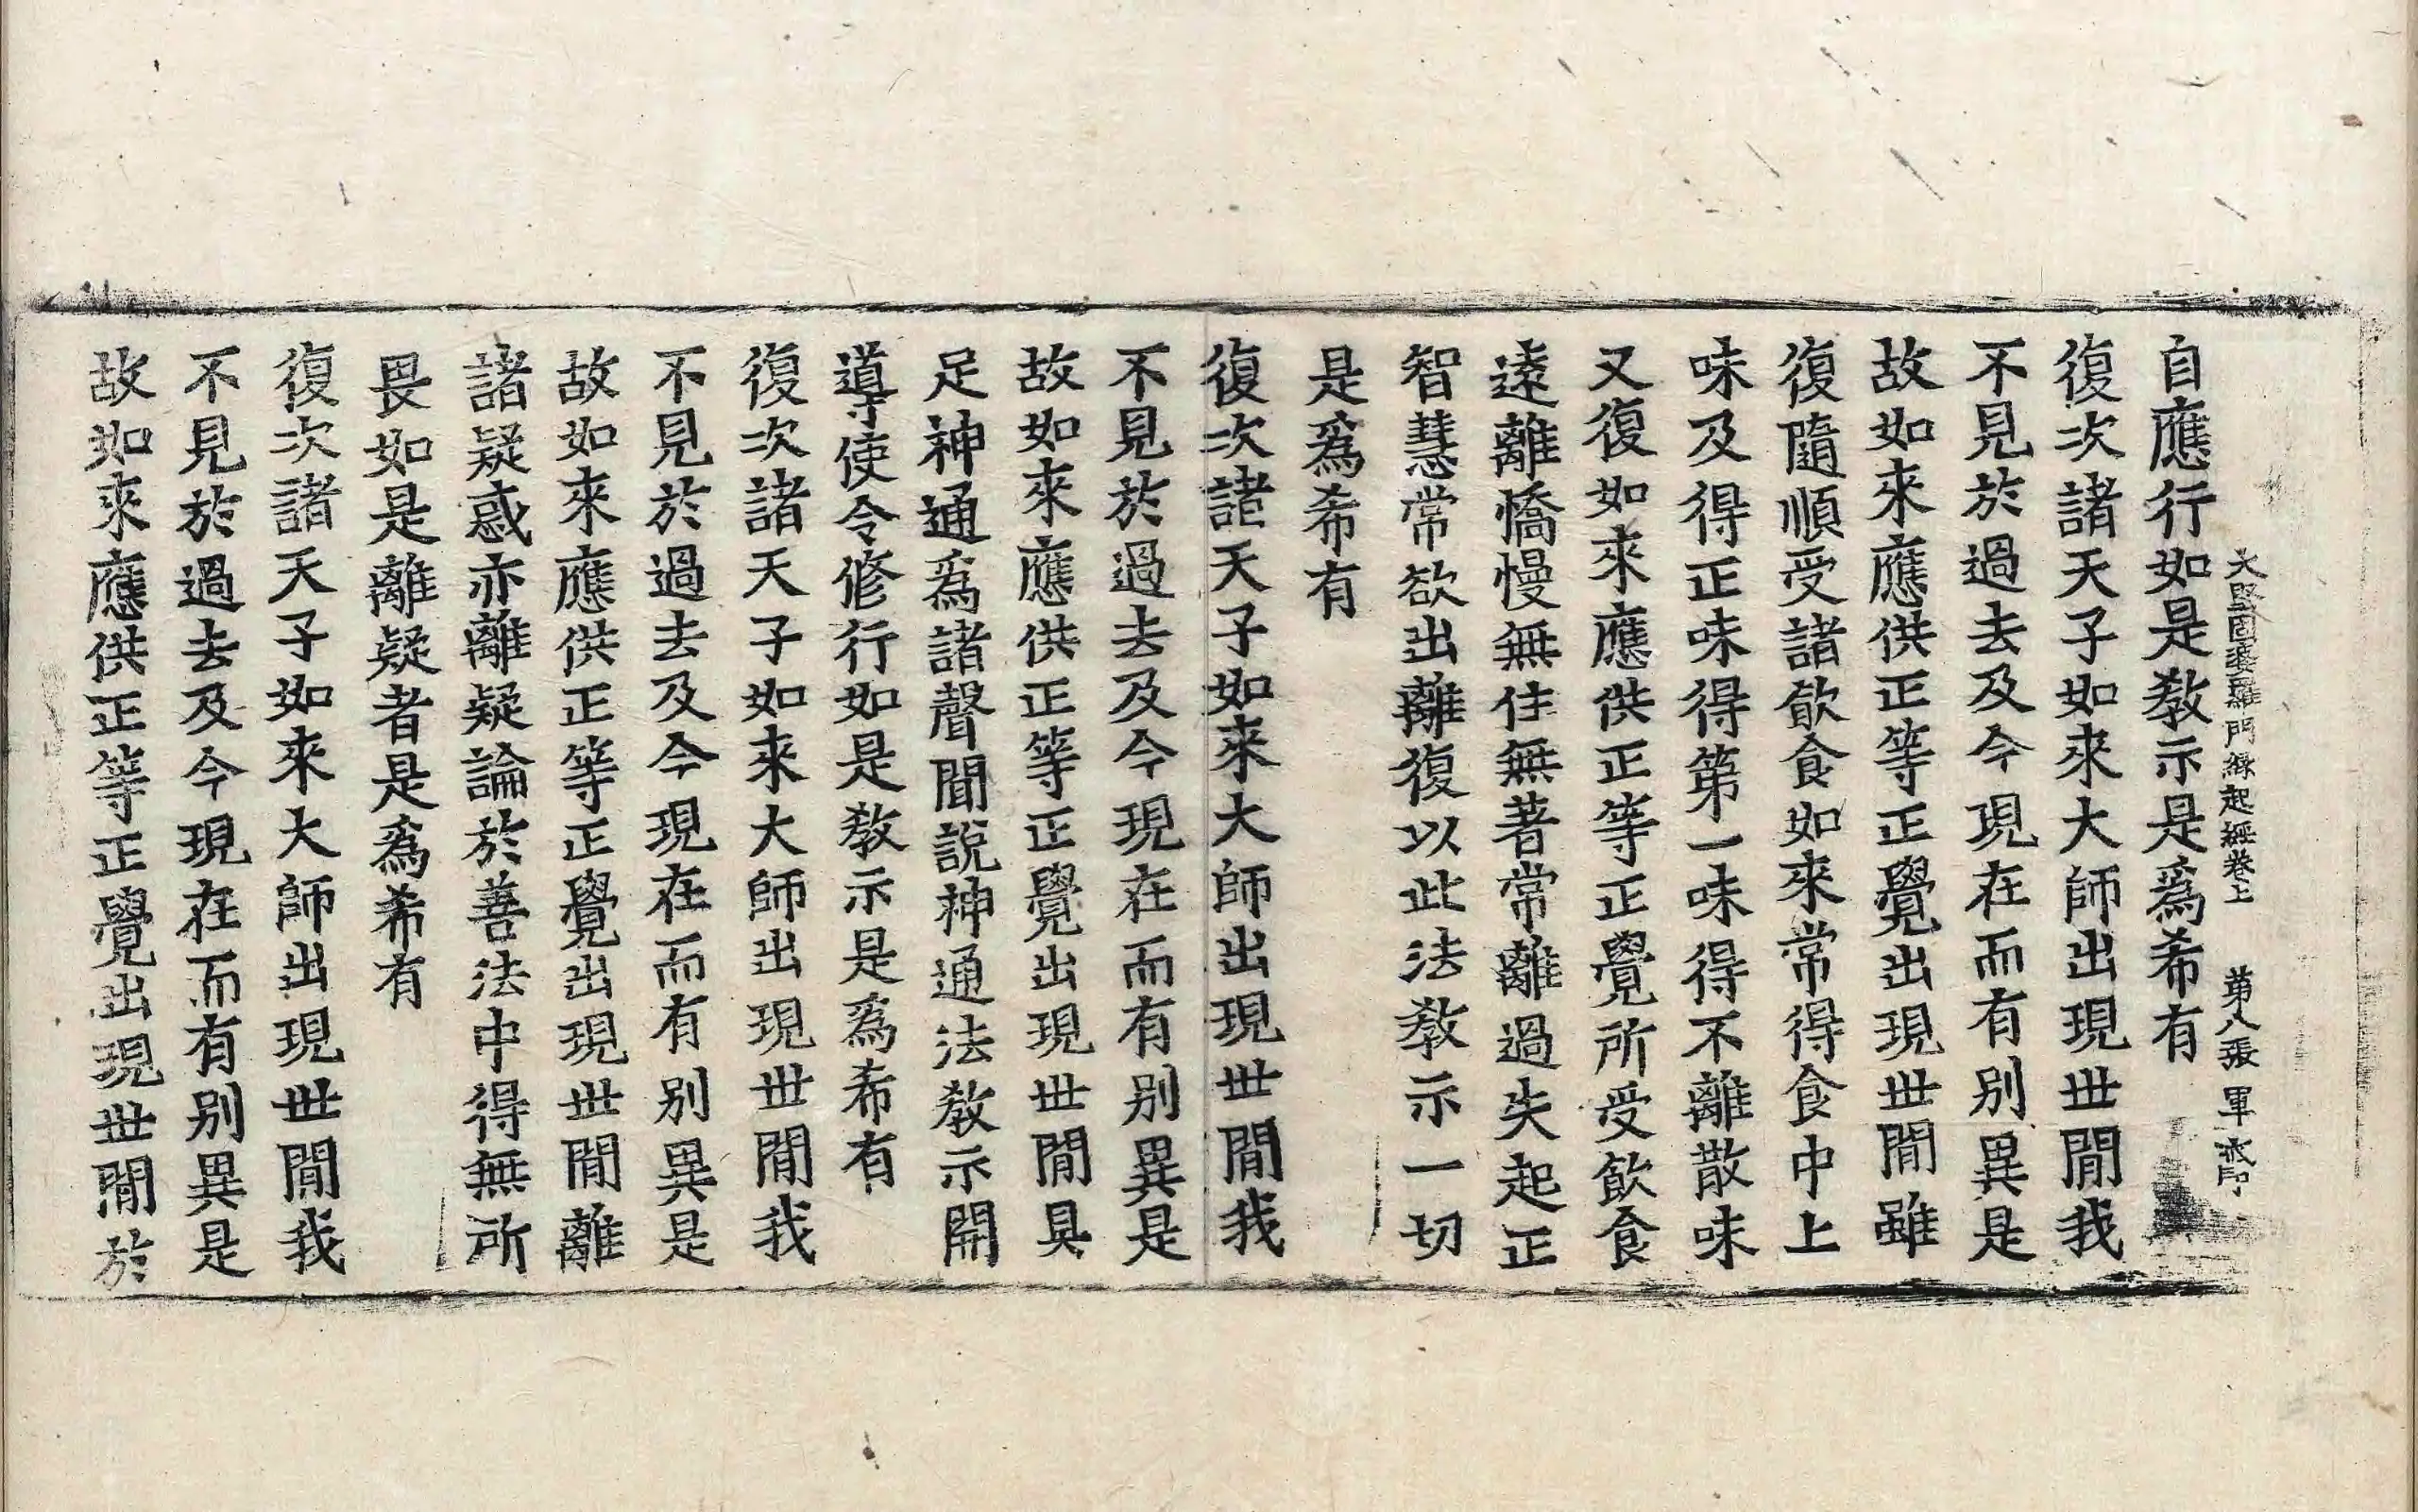 大堅固婆羅門緣起經卷上 第八張 軍
自應行如是教示是爲希有
復次諸天子如來大師出現世間我
不見於過去及今現在而有別異是
故如來應供正等正覺出現世間雖
復隨順受諸飮食如來常得食中上
味及得正味得第一味得不離散味
又復如來應供正等正覺所受飮食
遠離憍慢無住無著常離過失起正
智慧常欲出離復以此法教示一切
是爲希有
復次諸天子如來大師出現世間我
不見於過去及今現在而有別異是
故如來應供正等正覺出現世間具
足神通爲諸聲聞說神通法教示開
導使令修行如是教示是爲希有
復次諸天子如來大師出現世間我
不見於過去及今現在而有別異是
故如來應供正等正覺出現世間離
諸疑惑亦離疑論於善法中得無所
畏如是離疑者是爲希有
復次諸天子如來大師出現世間我
不見於過去及今現在而有別異是
故如來應供正等正覺出現世間於